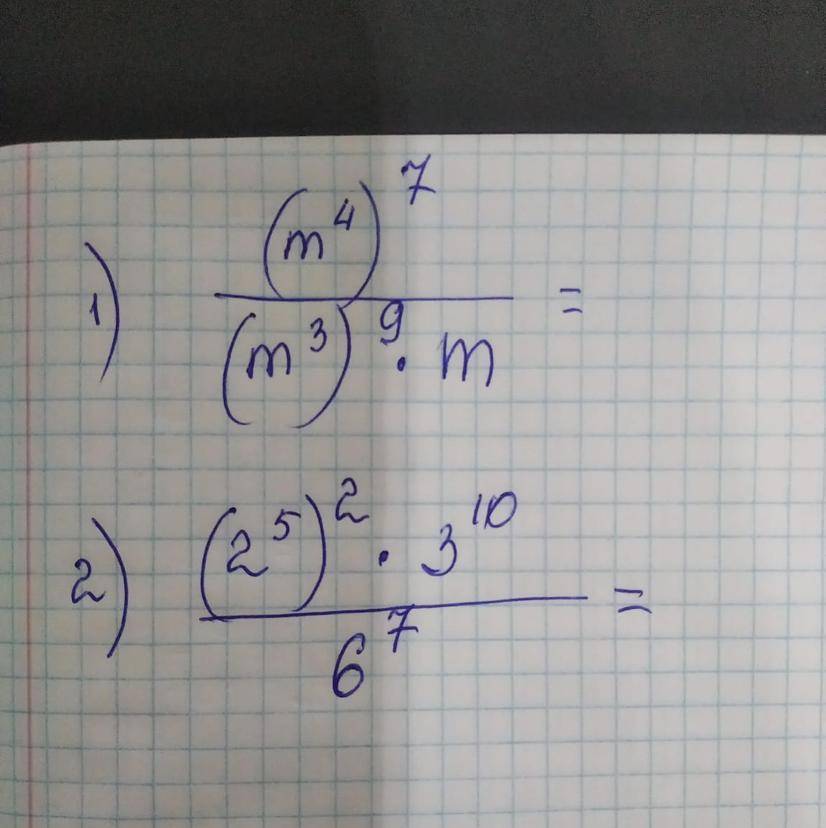 1) (m⁴)⁷ / (m³)⁹ · m =
2) (2⁵)² · 3¹⁰ / 6⁷ =